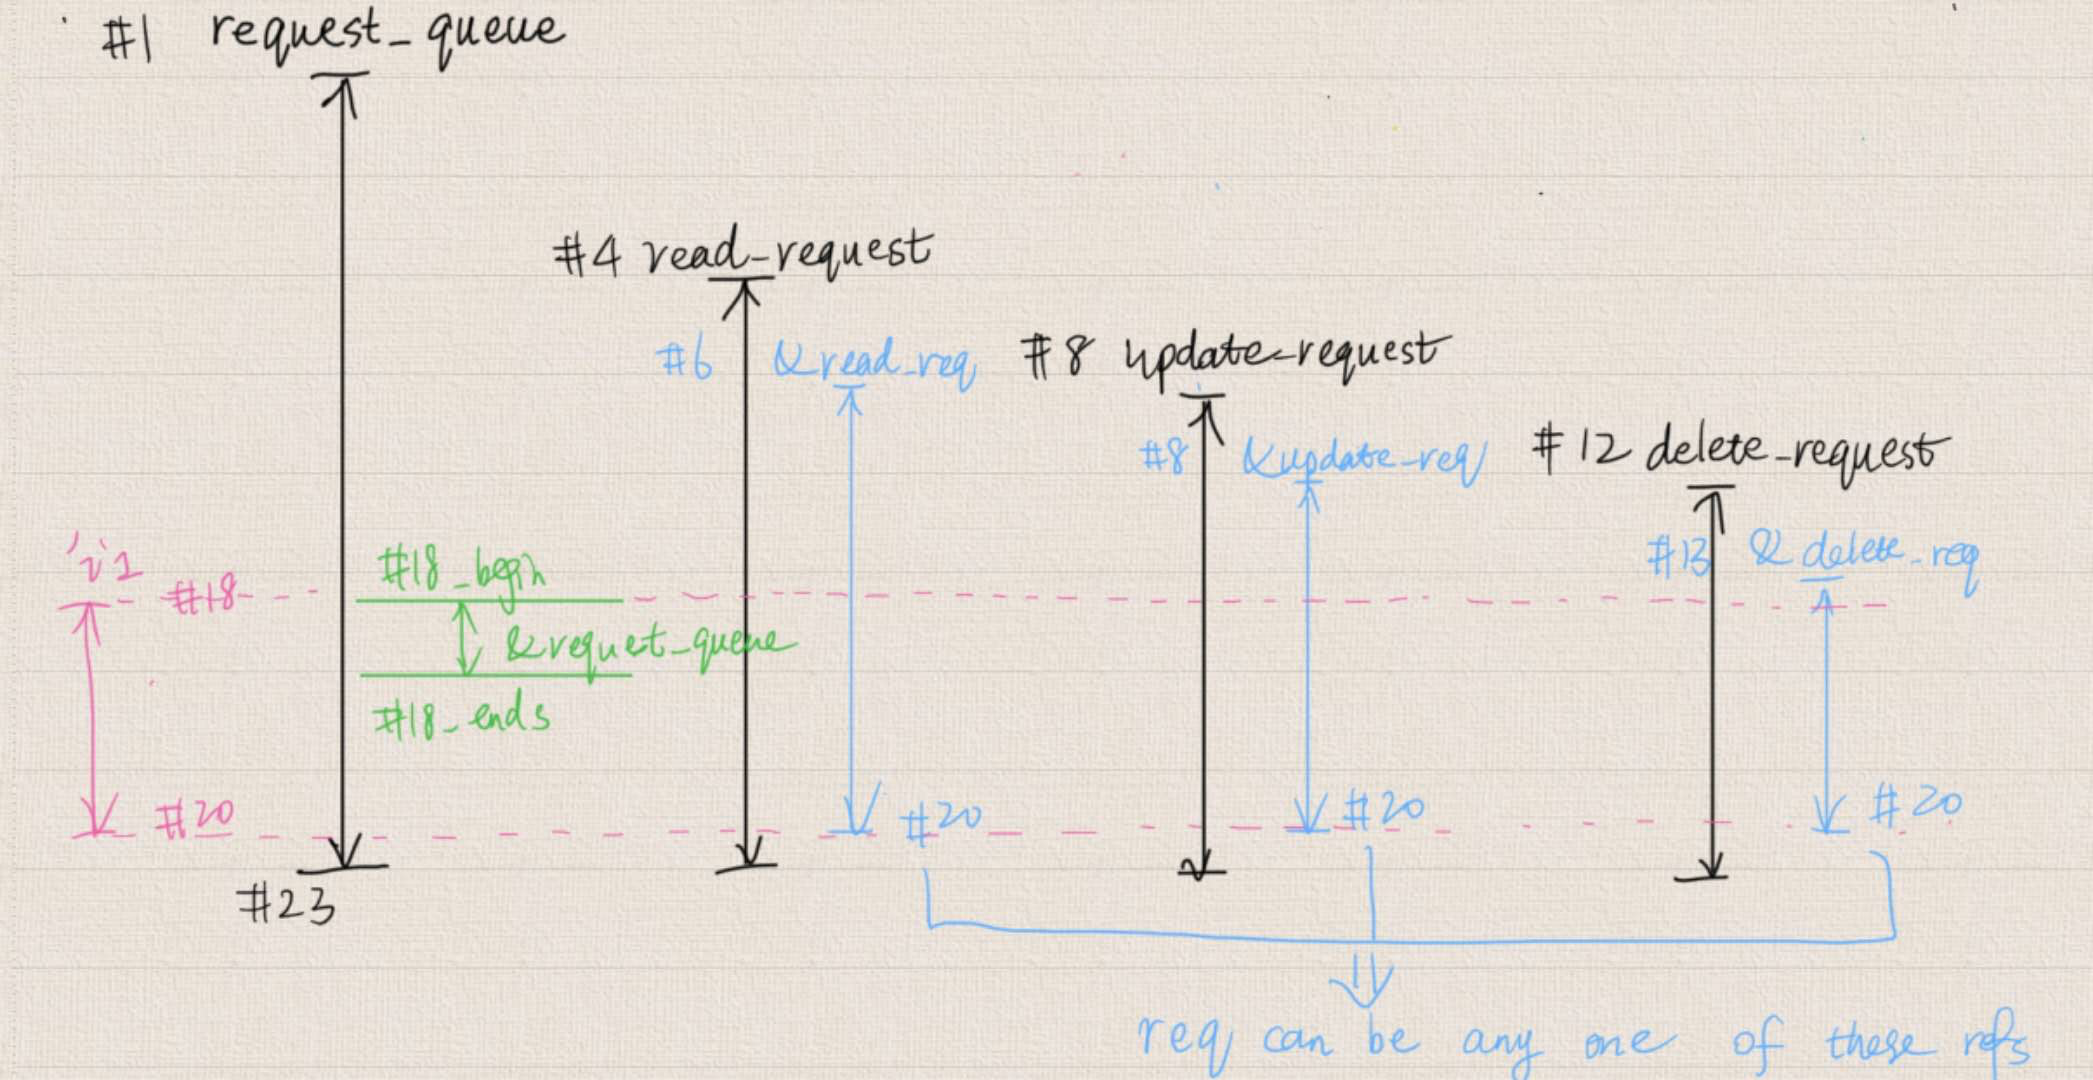 #1 request_queue
#4 read_request
#6 &read_req
#8 update_request
#8 &update_req
#12 delete_request
#13 &delete_req
#18
#18_begin
&requet_queue
#18_ends
#20
#20
#20
#20
#23
req can be any one of these refs